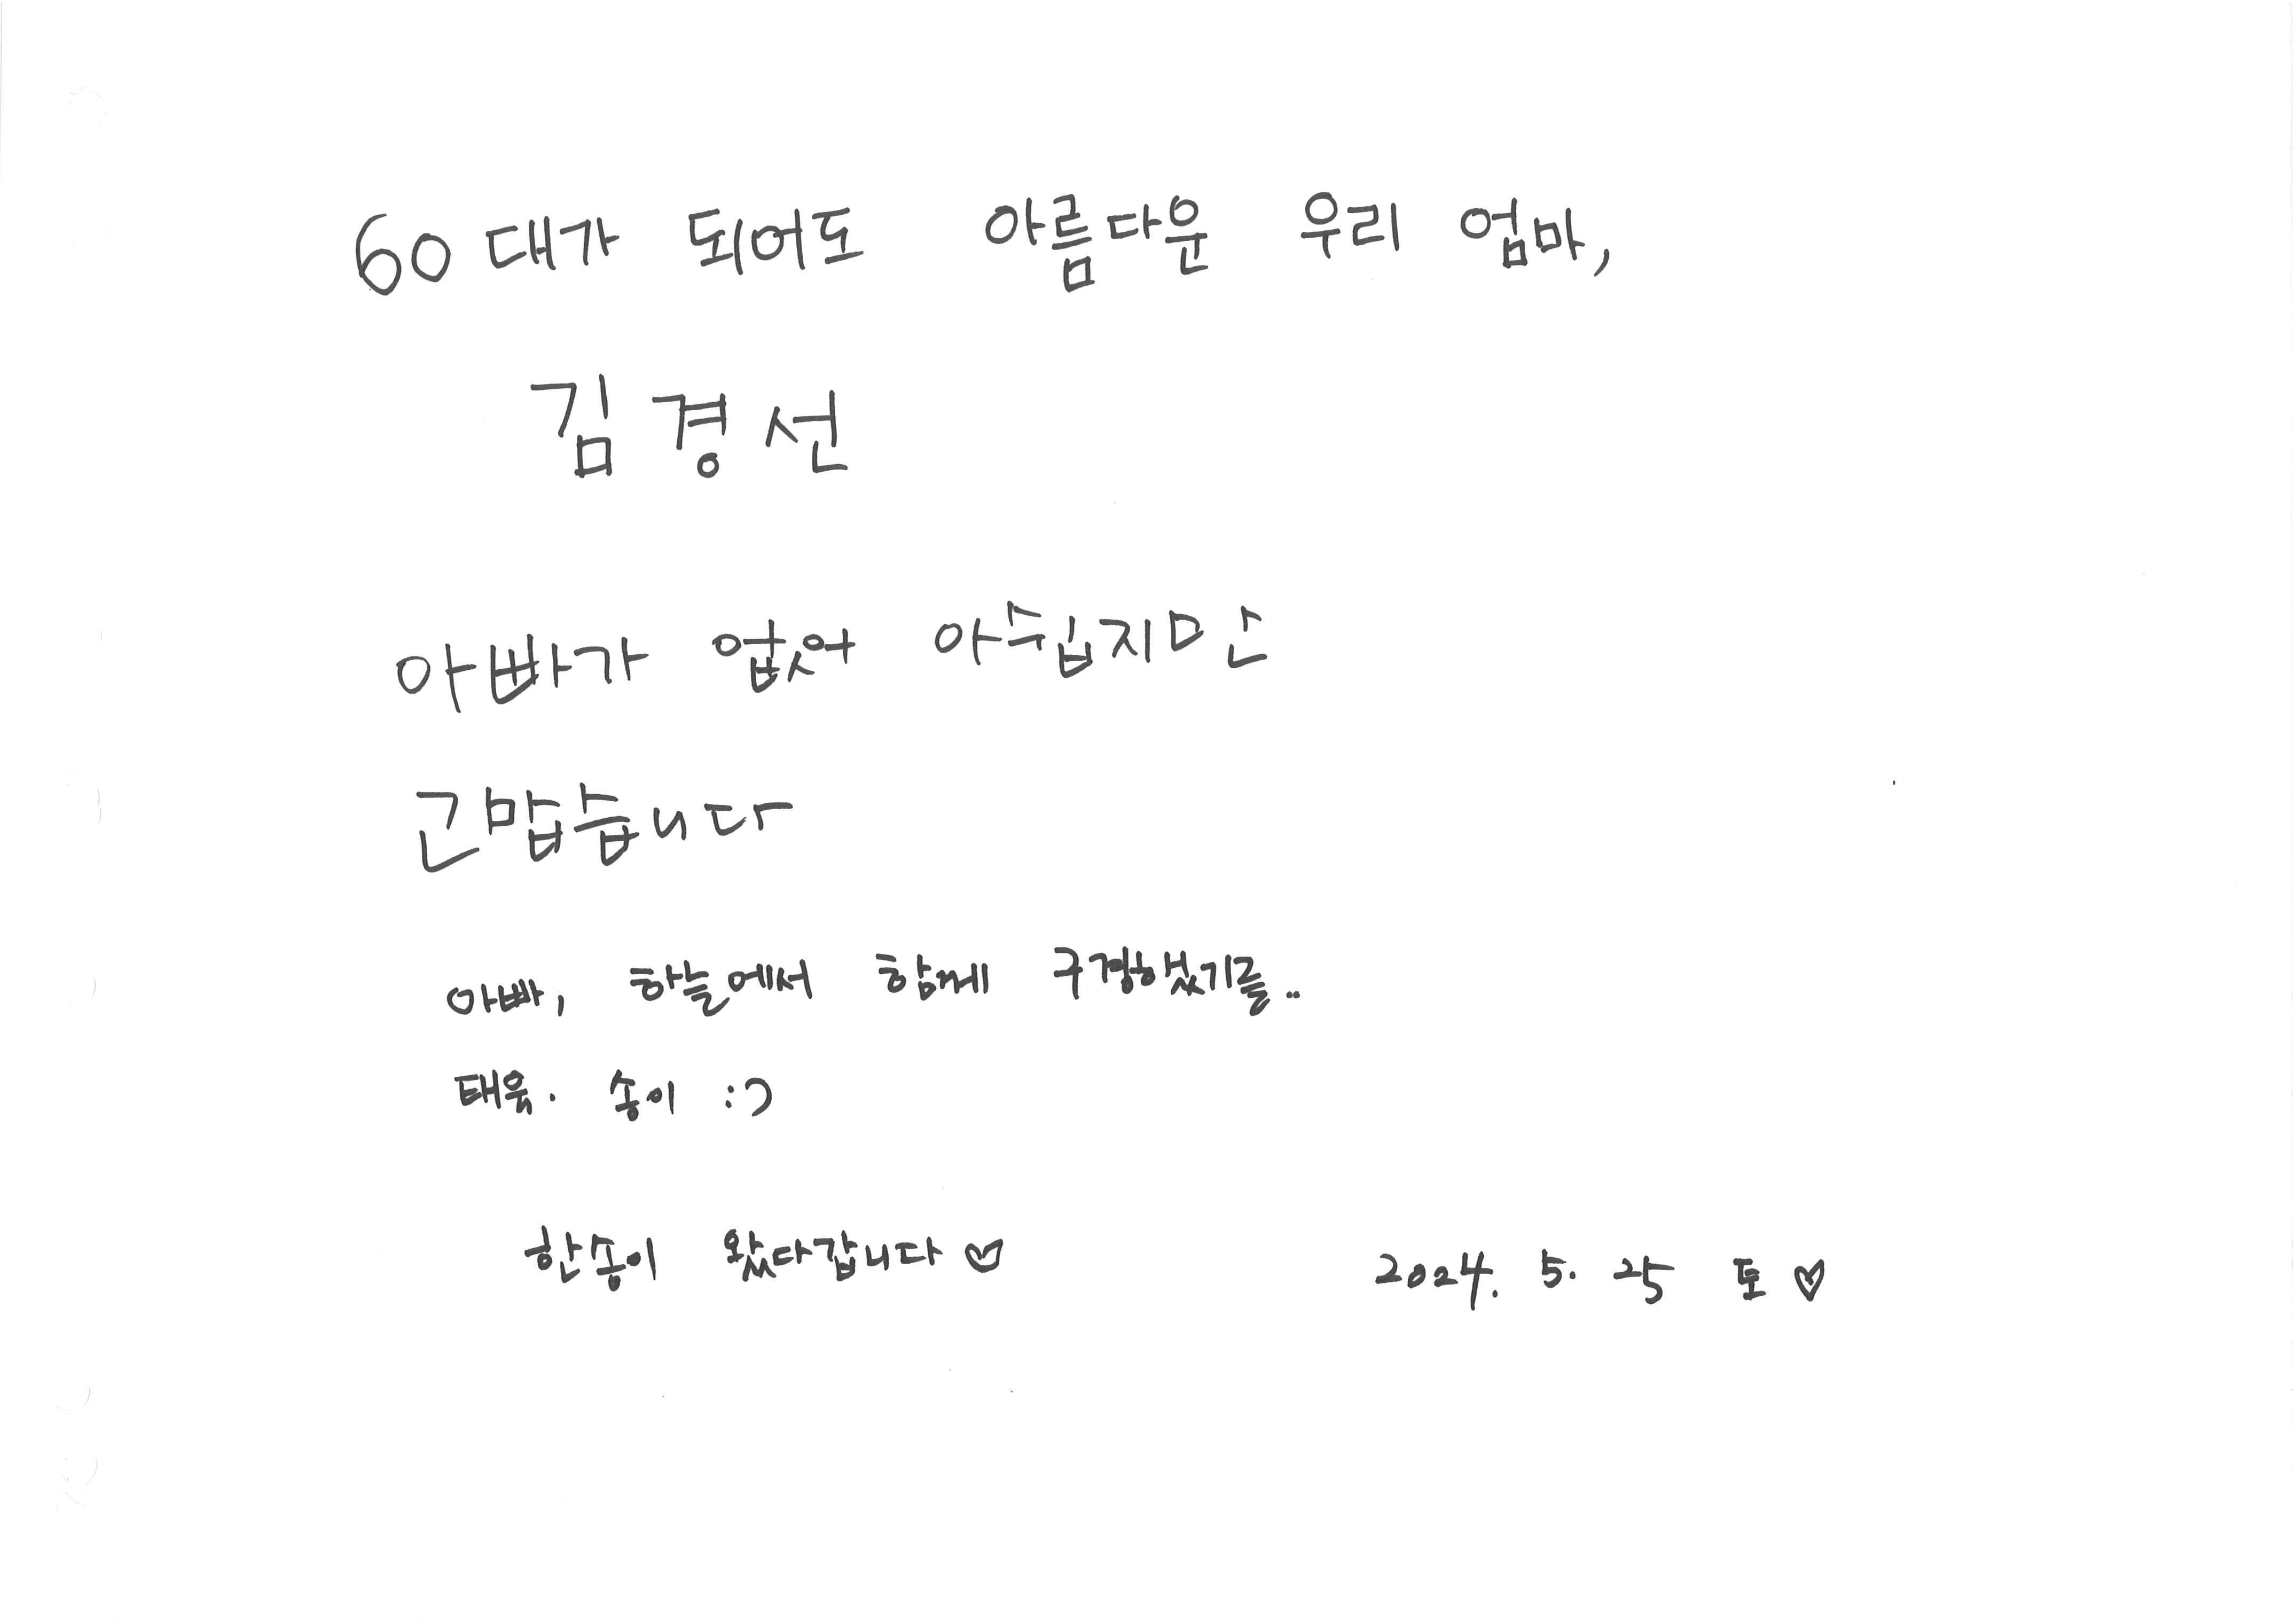 60대가 되어도 아름다운 우리 엄마,
김경선
아빠가 없어 아쉽지만
고맙습니다
아빠, 하늘에서 함께 구경하셨기를..
태욱. 송이 :)
한송이 왔다갑니다 ♡
2024. 5. 25 토 ♡